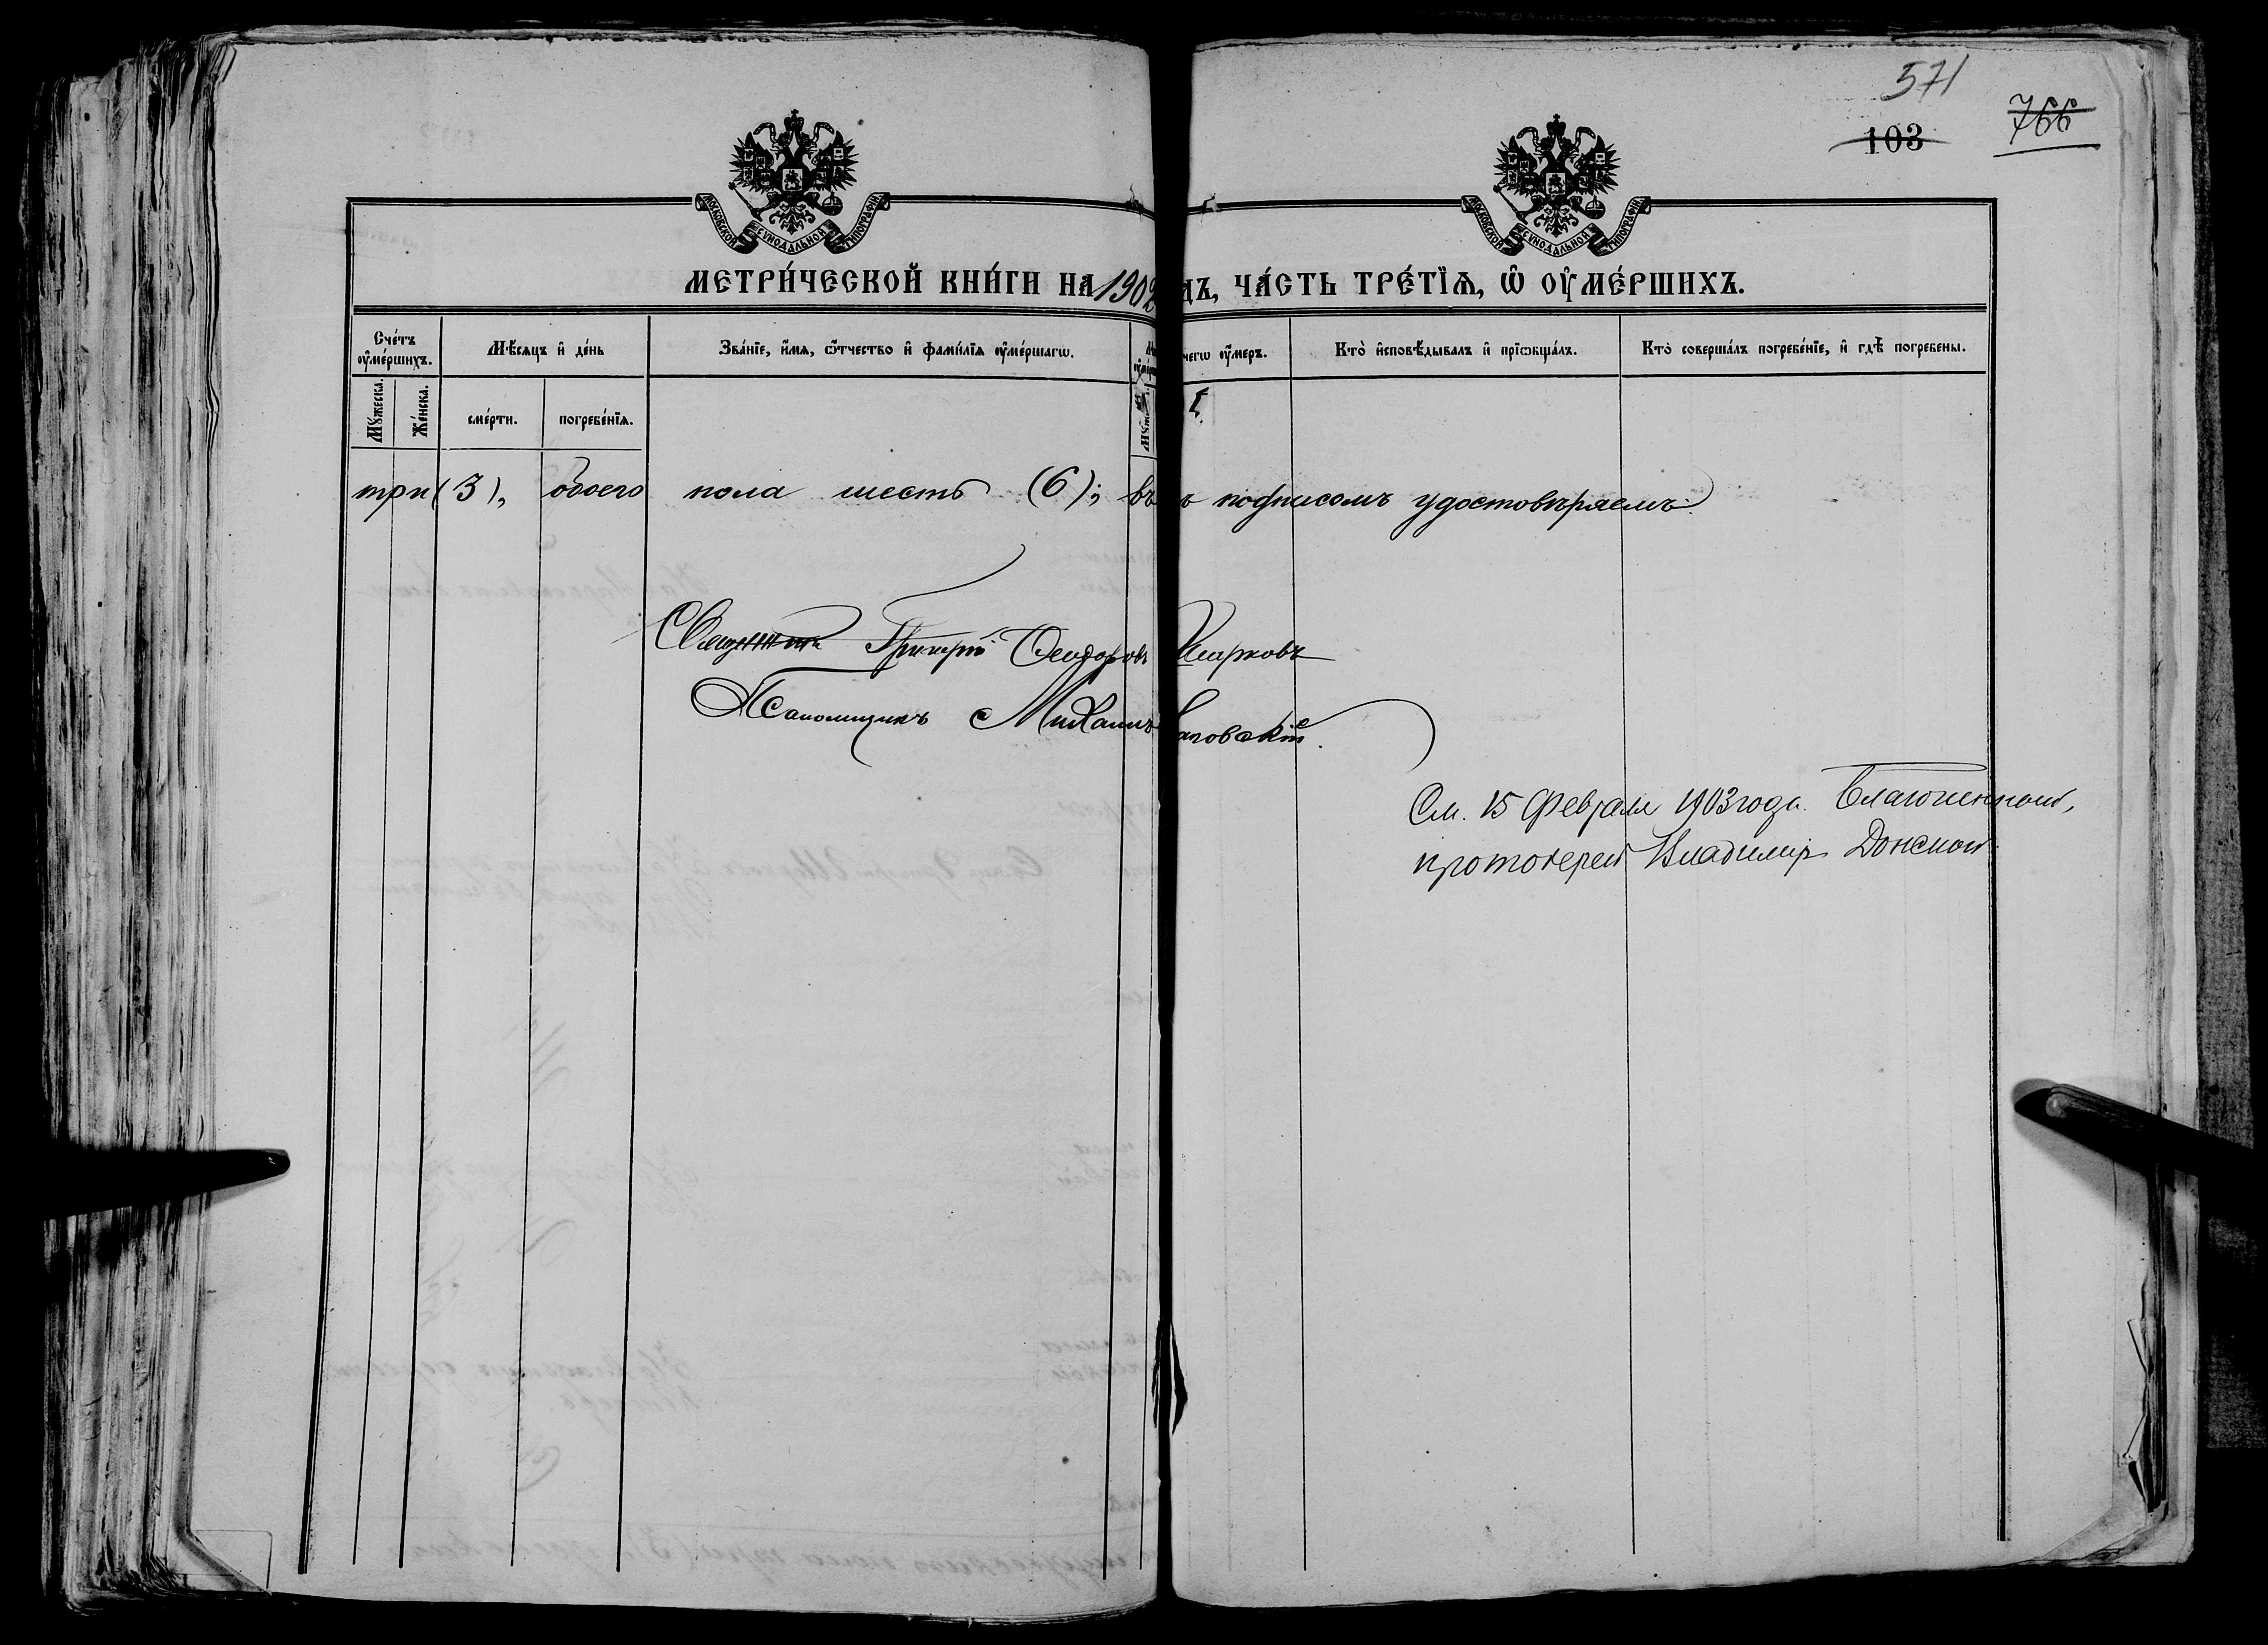 571
103
766
МОСКОВСКОЙ СѴНОДАЛЬНОЙ ТИПОГРАФІИ
МОСКОВСКОЙ СѴНОДАЛЬНОЙ ТИПОГРАФІИ
МЕТРИ́ЧЕСКОЙ КНИ́ГИ НА 1902 ДЪ, ЧА́СТЬ ТРЕ́ТЇѦ, Ѡ҆ ОУ҆МЕ́РШИХЪ.
Сче́тъ оу҆ме́ршихъ.
Мѣ́сяцъ и҆ де́нь
Зва́нїе, и҆́мя, ѻ҆́тчество и҆ фами́лїя оу҆ме́ршагѡ.
чегѡ оу҆́меръ.
Кто̀ и҆сповѣ́дывалъ и҆ прїѡбща́лъ.
Кто̀ соверша́лъ погребе́нїе, и҆ гдѣ̀ погребены.
Мꙋ́жеска.
Же́нска.
сме́рти.
погребе́нїя.
три (3), обоего пола шесть (6); въ подписомъ удостовѣряемъ.
Священникъ Григорій Ѳеодоровъ
Псаломщикъ Михаилъ
См. 15 Февраля 1903 года. Благочинный,
протоіерей Владимір Донской